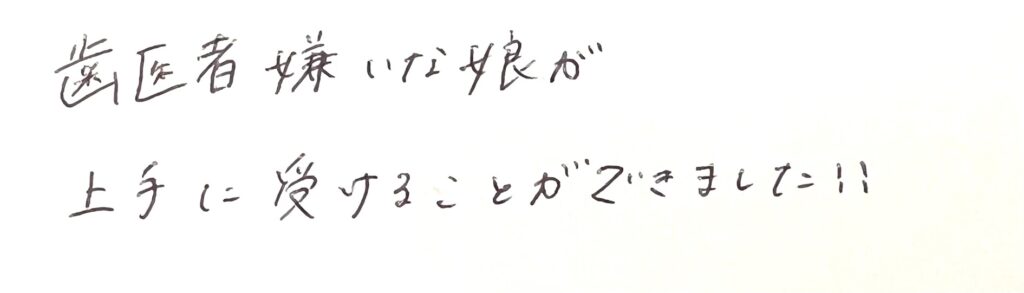 歯医者嫌いな娘が
上手に受けることができました!!